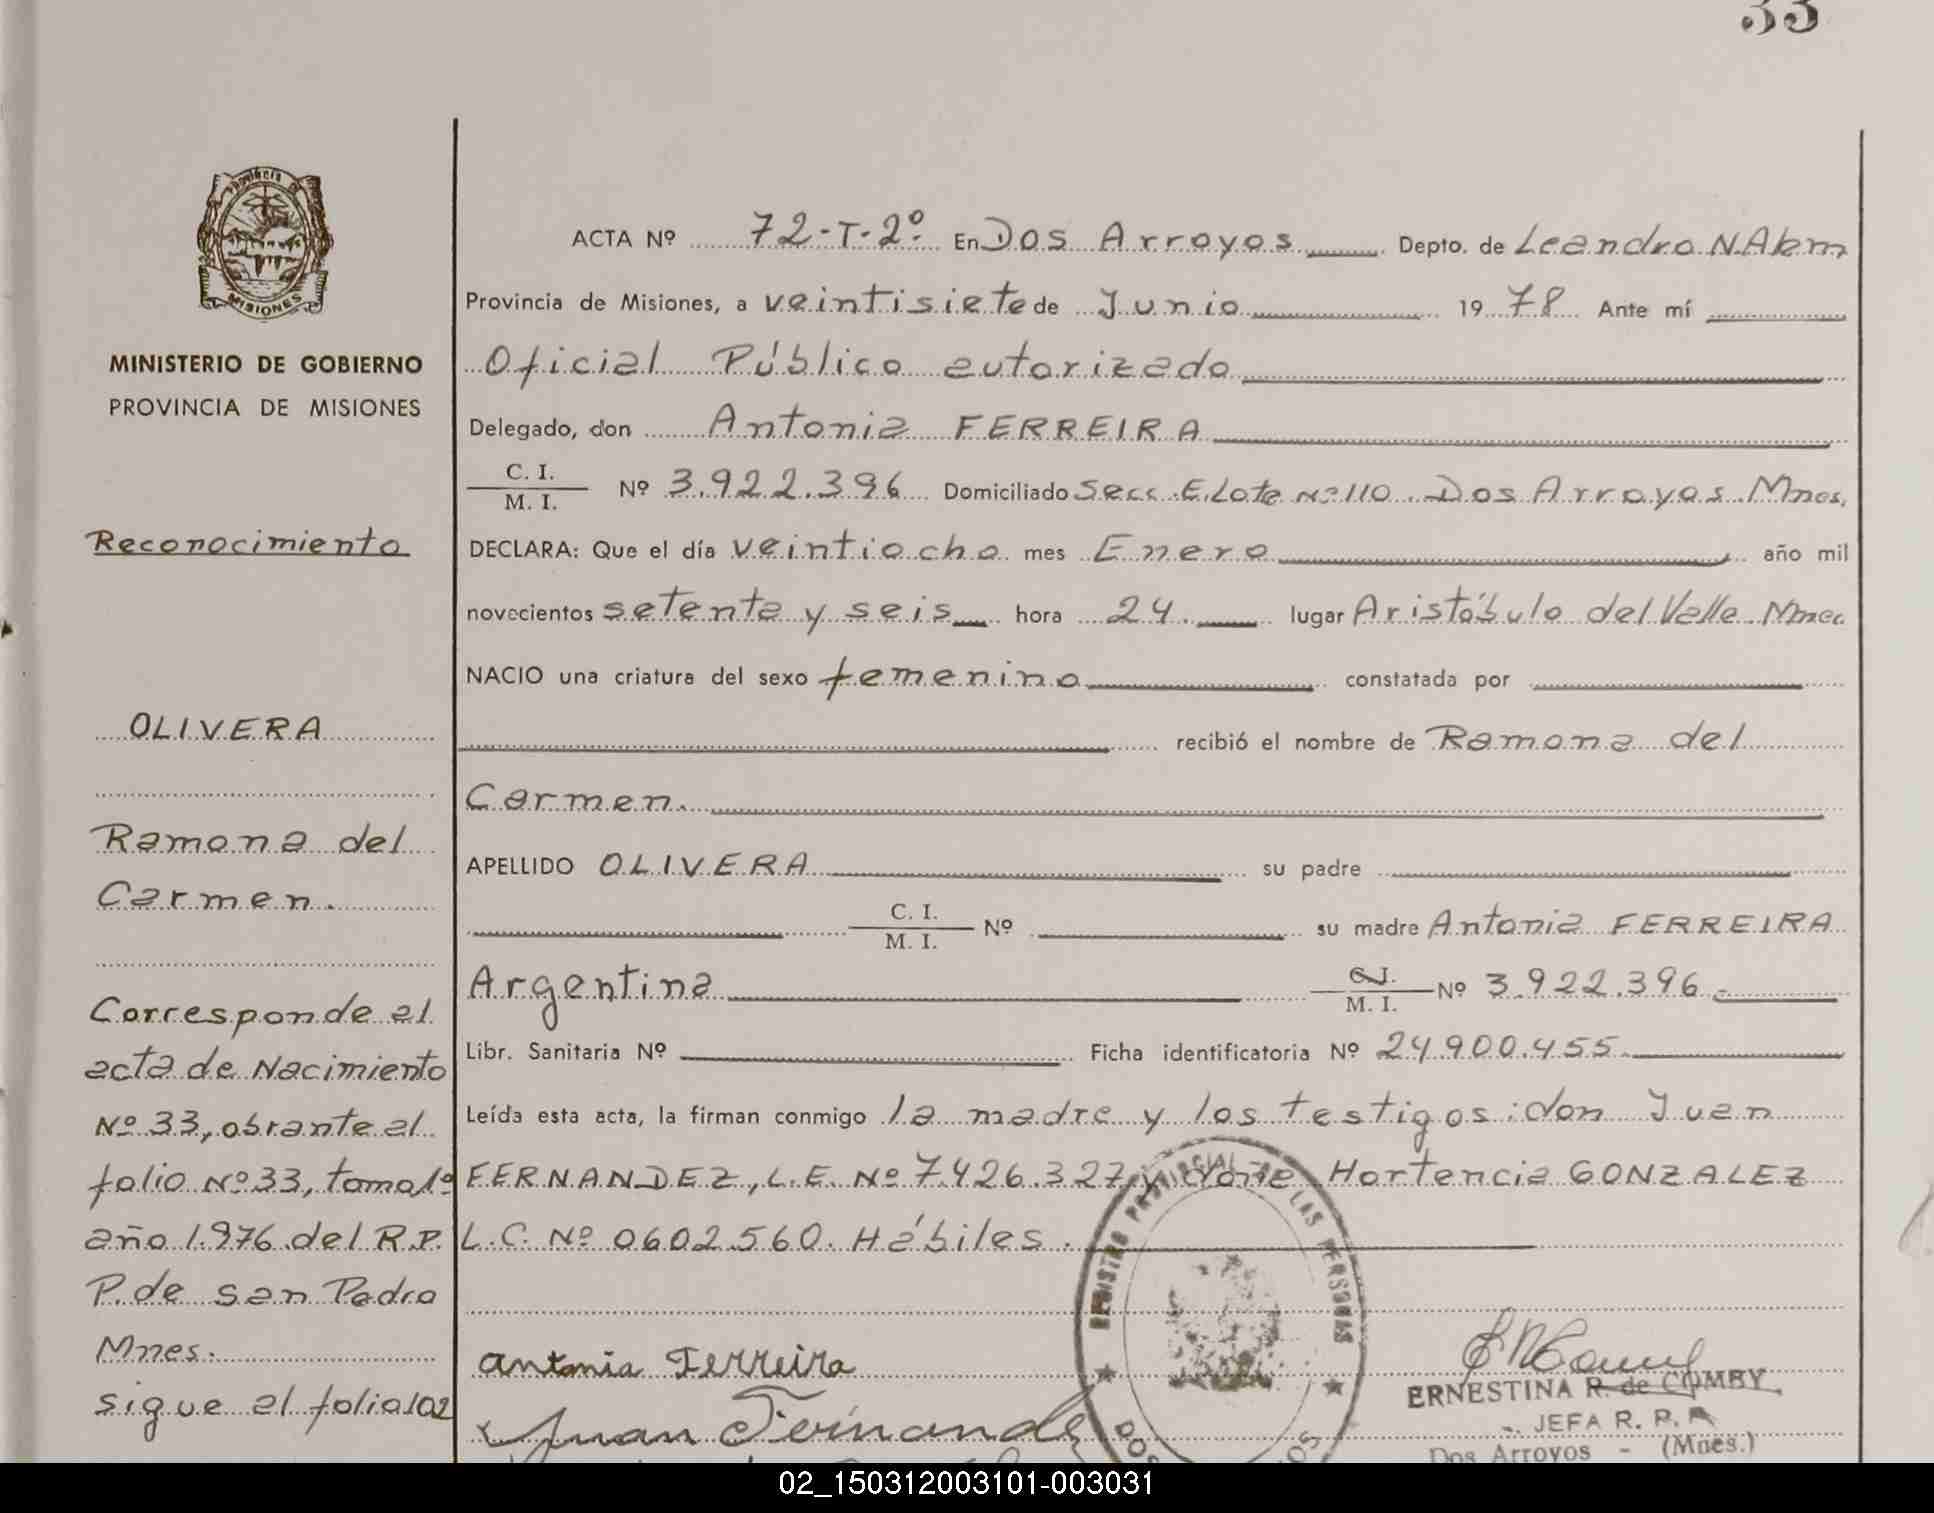 33
Provincia de
MISIONES
MINISTERIO DE GOBIERNO
PROVINCIA DE MISIONES
Reconocimiento
OLIVERA
Ramona del
Carmen.
Corresponde al
acta de Nacimiento
Nº 33, obrante al
folio Nº 33, tomo 1º
año 1.976 del R.P.
P. de San Pedro
Mnes.
sigue al folio 102
ACTA Nº 72-T-2º En Dos Arroyos Depto. de Leandro N. Alem
Provincia de Misiones, a veintisiete de Junio 1978 Ante mí
Oficial Público autorizado
Delegado, don Antonia FERREIRA
C. I.
M. I. Nº 3.922.396 Domiciliado Secc. E. Lote Nº 110. Dos Arroyos Mnes.
DECLARA: Que el día veintiocho mes Enero año mil
novecientos setenta y seis hora 24. lugar Aristóbulo del Valle. Mnes.
NACIO una criatura del sexo femenino constatada por
recibió el nombre de Ramona del
Carmen.
APELLIDO OLIVERA su padre
C. I.
M. I. Nº su madre Antonia FERREIRA
Argentina C.I.
M. I. Nº 3.922.396.-
Libr. Sanitaria Nº Ficha identificatoria Nº 24.900.455.
Leída esta acta, la firman conmigo la madre y los testigos: don Juan
FERNANDEZ, L.E. Nº 7.426.327 y doña Hortencia GONZALEZ
L.C. Nº 0602560. Hábiles.
REGISTRO PROVINCIAL DE LAS PERSONAS
antonia Ferreira
Juan Fernandez
ERNESTINA R. de COMBY
JEFA R. P. P.
Dos Arroyos - (Mnes.)
02_150312003101-003031